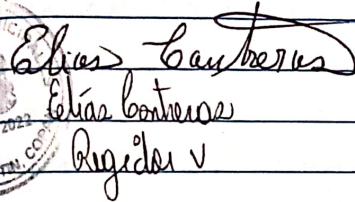 Elias Contreras
Elías Contreras
Regidor V
2022